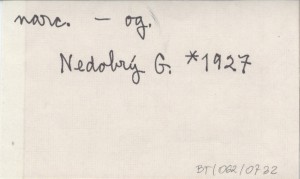 narc. – og.
Nedobrý G. *1927
BT/062/0722